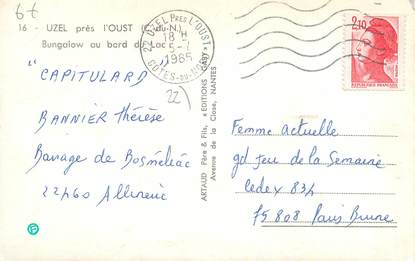 6f
16 - UZEL près l'OUST (C.-du-N.)
Bungalow au bord du Lac
22 UZEL PRES L'OUST
18 H
5-7
1985
COTES-DU-NORD
2,10
REPUBLIQUE FRANCAISE
"CAPITULARD"
22)
BANNIER Thérèse
Barrage de Bosméléac
22460 Allineuc
ARTAUD Père & Fils, "EDITIONS GABY"
Avenue de la Close, NANTES
Femme actuelle
gd jeu de la Semaine
Cedex 834
75808 Paris Brune